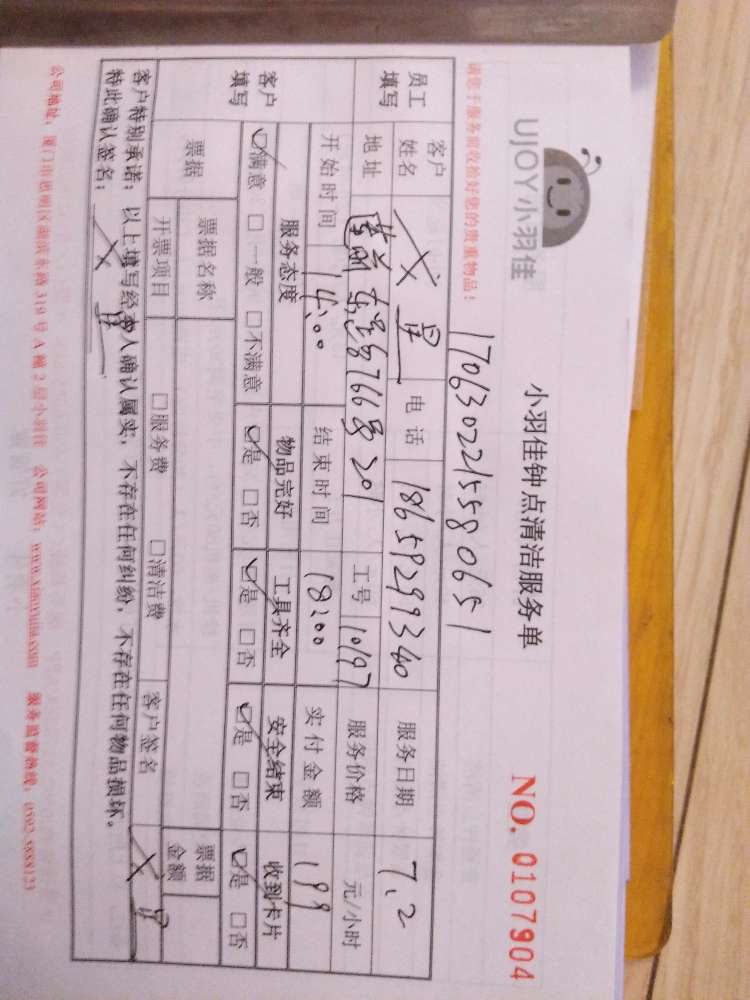 UJOY小羽佳
小羽佳钟点清洁服务单
NO. 0107904
请您于服务前收拾好您的贵重物品：
1706302215580651
员工填写
客户姓名
电话 18659299340
服务日期 7.2
地址 莲前东路766号201
工号 10197
服务价格 元/小时
开始时间 14:00
结束时间 18:00
实付金额 199
客户填写
服务态度 物品完好 工具齐全 安全结束 收到卡片
☑满意 □一般 □不满意 ☑是 □否 ☑是 □否 ☑是 □否 ☑是 □否
票据 票据名称 票据金额
开票项目 □服务费 □清洁费 客户签名
客户特别承诺：以上填写经本人确认属实，不存在任何纠纷，不存在任何物品损坏。
特此确认签名：
公司地址：厦门市思明区湖滨东路319号A幢2层小羽佳 公司网站：www.xiaoyujia.com 服务监督热线：0592-5888123